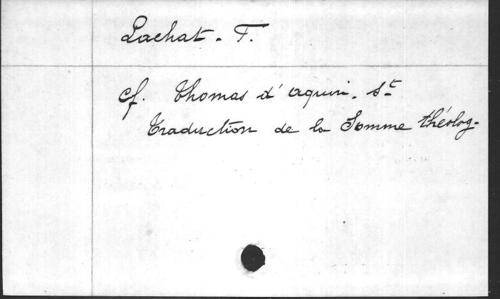 Lachat. F.
cf. Thomas d'Aquin. St
Traduction de la Somme théolog.